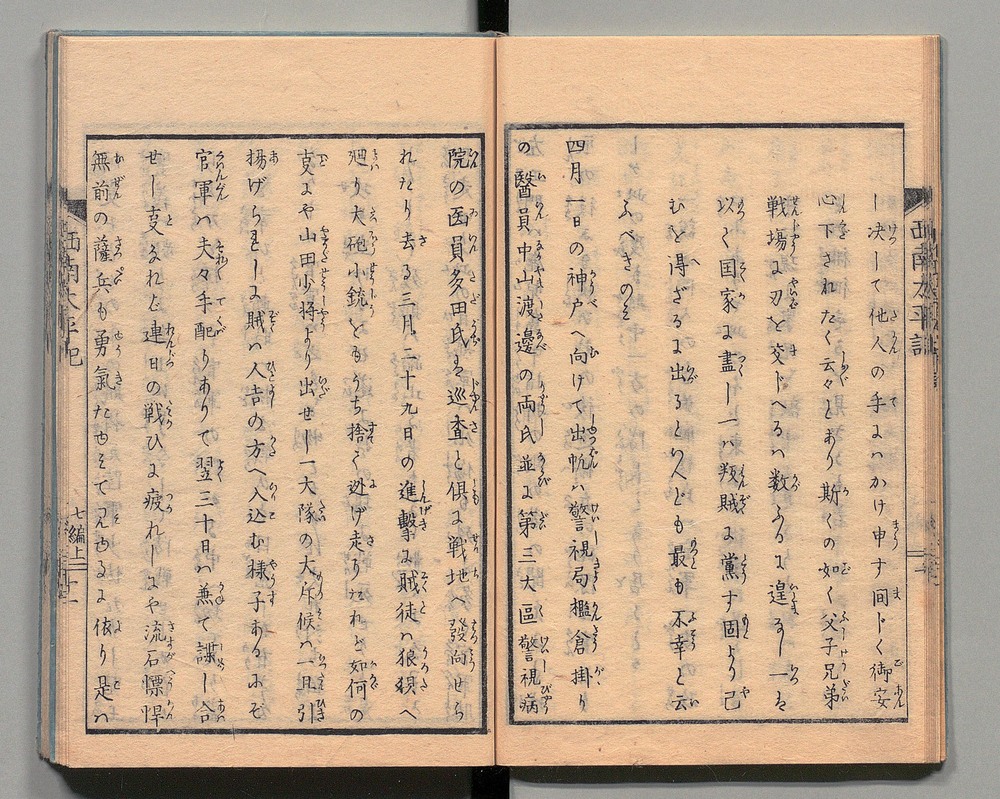 し决して他人の手にハかけ申す間じく御安
心下されたく云々とあり斯くの如く父子兄弟
戦場に刃を交じへるハ数ふるに遑なし一を
以て国家に盡し一ハ叛賊に黨す固より己
むを得ざるに出るといへども最も不幸と云
ふべきのミ
四月一日の神戸へ向けて出帆ハ警視局檻倉掛り
の醫員中山渡邊の両氏並に第三大區警視病
院の医員多田氏を巡査と倶に戦地へ發向せら
れたり去る三月二十九日の進擊に賊徒ハ狼狽へ
廻り大砲小銃をもうち捨て逃げ走りたれど如何の
支にや山田少将より出せし一大隊の大斥候ハ一旦引
揚げられしに賊ハ人吉の方へ入込む様子あるにぞ
官軍ハ夫々手配りありて翌三十日ハ兼て諜し合
せし支なれど連日の戦ひに疲れしにや流石慓悍
無前の薩兵も勇氣たゆミて見ゆるに依り是ハ
西南太平記
七編上
十一
西南太平記